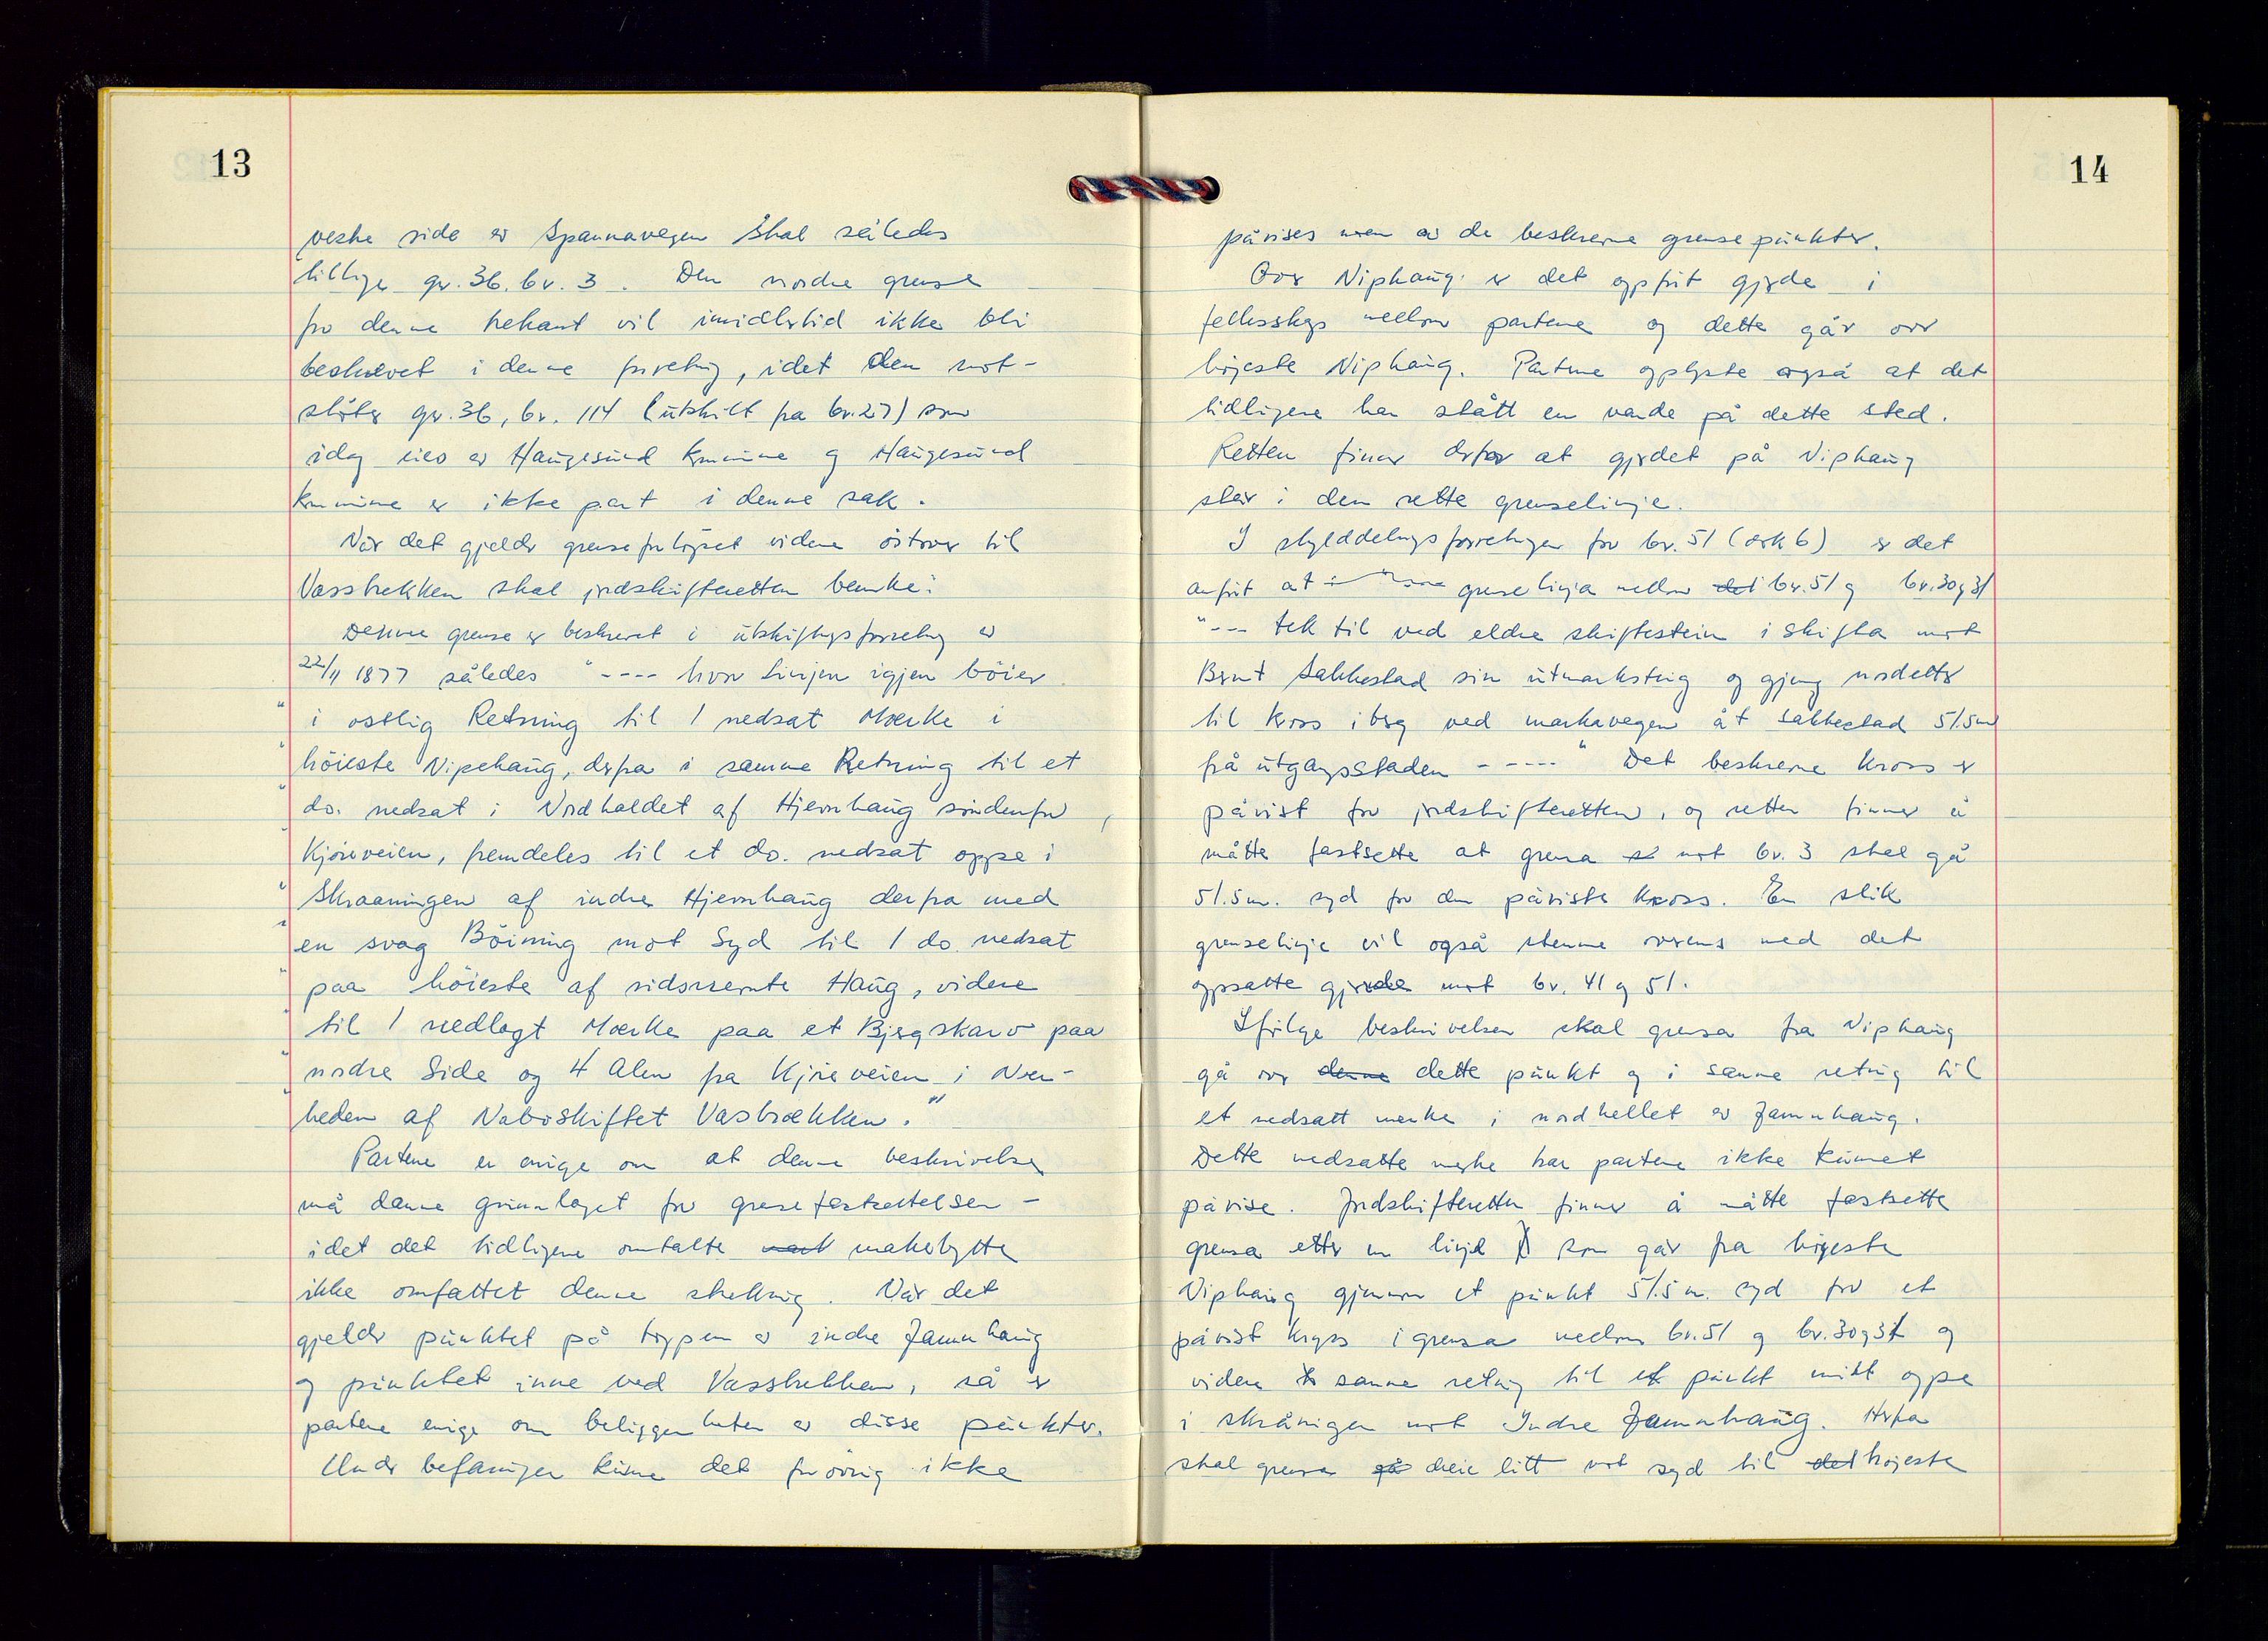 13
vestre side av Spannavegen skal således
tillige gr. 36. br. 3. Den nordre grense
fra denne trekant vil imidlertid ikke bli
beskrevet i denne forretning, idet den mot-
støter gr. 36, br. 114 (utskilt fra br. 27) som
idag eies av Haugesund kommune og Haugesund
kommune er ikke part i denne sak.
Når det gjelder grenseforløpet videre østover til
Vasstrekken skal jordskifteretten bemerke:
Denne grense er beskrevet i utskiftningsforretning av
22/11 1877 således "---- hvor Linjen igjen böier
" i ostlig Retning til 1 nedsat Mærke i
" höieste Vipehaug, derfra i samme Retning til et
" do. nedsat i Nordhaldet af Hjernhaug söndenfor
" Kjöreveien, fremdeles til et do. nedsat oppe i
" Skraaningen af indre Hjernhaug derfra med
" en svag Böining mot Syd til 1 do. nedsat
" paa höieste af sidsnevnte Haug, videre
" til 1 nedlagt Mærke paa et Bjergskarv paa
" nordre Side og 4 Alen fra Kjöreveien i Nær-
" heden af Naboskiftet Vasbrækken."
Partene er enige om at denne beskrivelse
må danne grunnlaget for grensefastsettelsen -
idet det tidligere omtalte makebytte
ikke omfattet denne strekning. Når det
gjelder punktet på toppen av indre Jamnhaug
og punktet inne ved Vasstrekken, så er
partene enige om beliggenheten av disse punkter.
Under befaringen kunne det forøvrig ikke
14
påvises noen av de beskrevne grensepunkter.
Over Niphaug er det oppført gjerde i
fellesskap mellom partene og dette går over
høyeste Niphaug. Partene opplyste også at det
tidligere har stått en varde på dette sted.
Retten finner derfor at gjerdet på Niphaug
står i den rette grenselinje.
I skylddelingsforretningen for br. 51 (dok 6) er det
anført at grenselinja mellom det br. 51 og br. 30 og 31
"--- tek til ved eldre skiftestein i skifta mot
Bernt Sakkestad sin utmarksteig og gjeng nordetter
til kross i berg ved markavegen åt Sakkestad 51.5m
frå utgangsstaden -----" Det beskrevne kross er
påvist for jordskifteretten, og retten finner å
måtte fastsette at grensa mot br. 3 skal gå
51.5m. syd for den påviste kross. En slik
grenselinje vil også stemme overens med det
oppsatte gjerde mot br. 41 og 51.
Ifølge beskrivelsen skal grensa fra Niphaug
gå over denne dette punkt og i samme retning til
et nedsatt merke i nordhellet av Jamnhaug.
Dette nedsatte merke har partene ikke kunnet
påvise. Jordskifteretten finner å måtte fastsette
grensa etter en linje som går fra høyeste
Niphaug gjennom et punkt 51.5 m. syd for et
påvist kryss i grensa mellom br. 51 og br. 30 og 31 og
videre samme retning til et punkt midt oppe
i skråningen mot Indre Jamnhaug. Herfra
skal grensa gå dreie litt mot syd til det høyeste